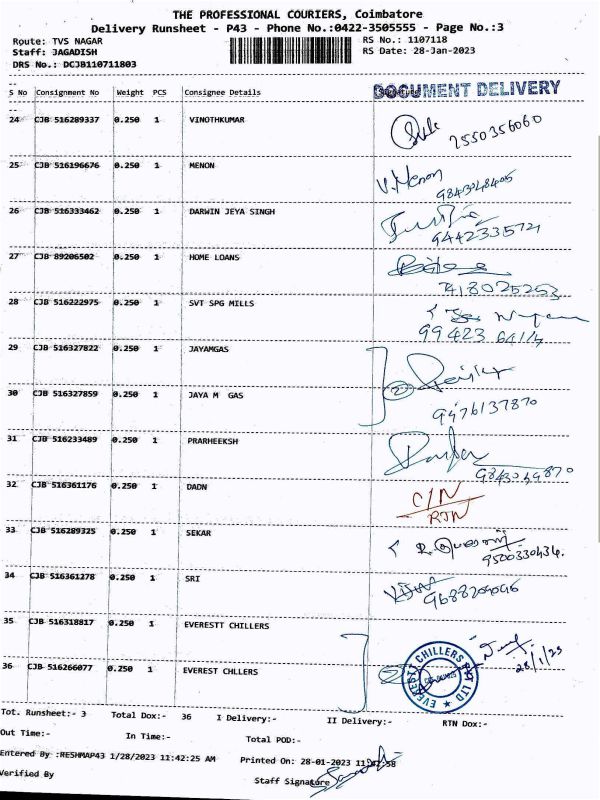 THE PROFESSIONAL COURIERS, Coimbatore
Delivery Runsheet - P43 - Phone No.:0422-3505555 - Page No.:3
Route: TVS NAGAR RS No.: 1107118
Staff: JAGADISH RS Date: 28-Jan-2023
DRS No.: DCJB110711803
DOCUMENT DELIVERY
S No Consignment No Weight PCS Consignee Details Signature
24 CJB 516289337 0.250 1 VINOTHKUMAR
7550356060
25 CJB 516196676 0.250 1 MENON V. Menon
26 CJB 516333462 0.250 1 DARWIN JEYA SINGH
9442335721
27 CJB 89206502 0.250 1 HOME LOANS
7418025253
28 CJB 516222975 0.250 1 SVT SPG MILLS
99423 64114
29 CJB 516327822 0.250 1 JAYAMGAS
2
30 CJB 516327859 0.250 1 JAYA M GAS
9476137870
31 CJB 516233489 0.250 1 PRARHEEKSH
32 CJB 516361176 0.250 1 DADN C/N
RTN
33 CJB 516289325 0.250 1 SEKAR
9500330434.
34 CJB 516361278 0.250 1 SRI
35 CJB 516318817 0.250 1 EVERESTT CHILLERS
28/1/23
36 CJB 516266077 0.250 1 EVEREST CHLLERS 2
EVEREST CHILLERS PVT LTD
Tot. Runsheet:- 3 Total Dox:- 36 I Delivery:- II Delivery:- RTN Dox:-
Out Time:- In Time:- Total POD:-
Entered By :RESHMAP43 1/28/2023 11:42:25 AM Printed On: 28-01-2023
Verified By Staff Signature